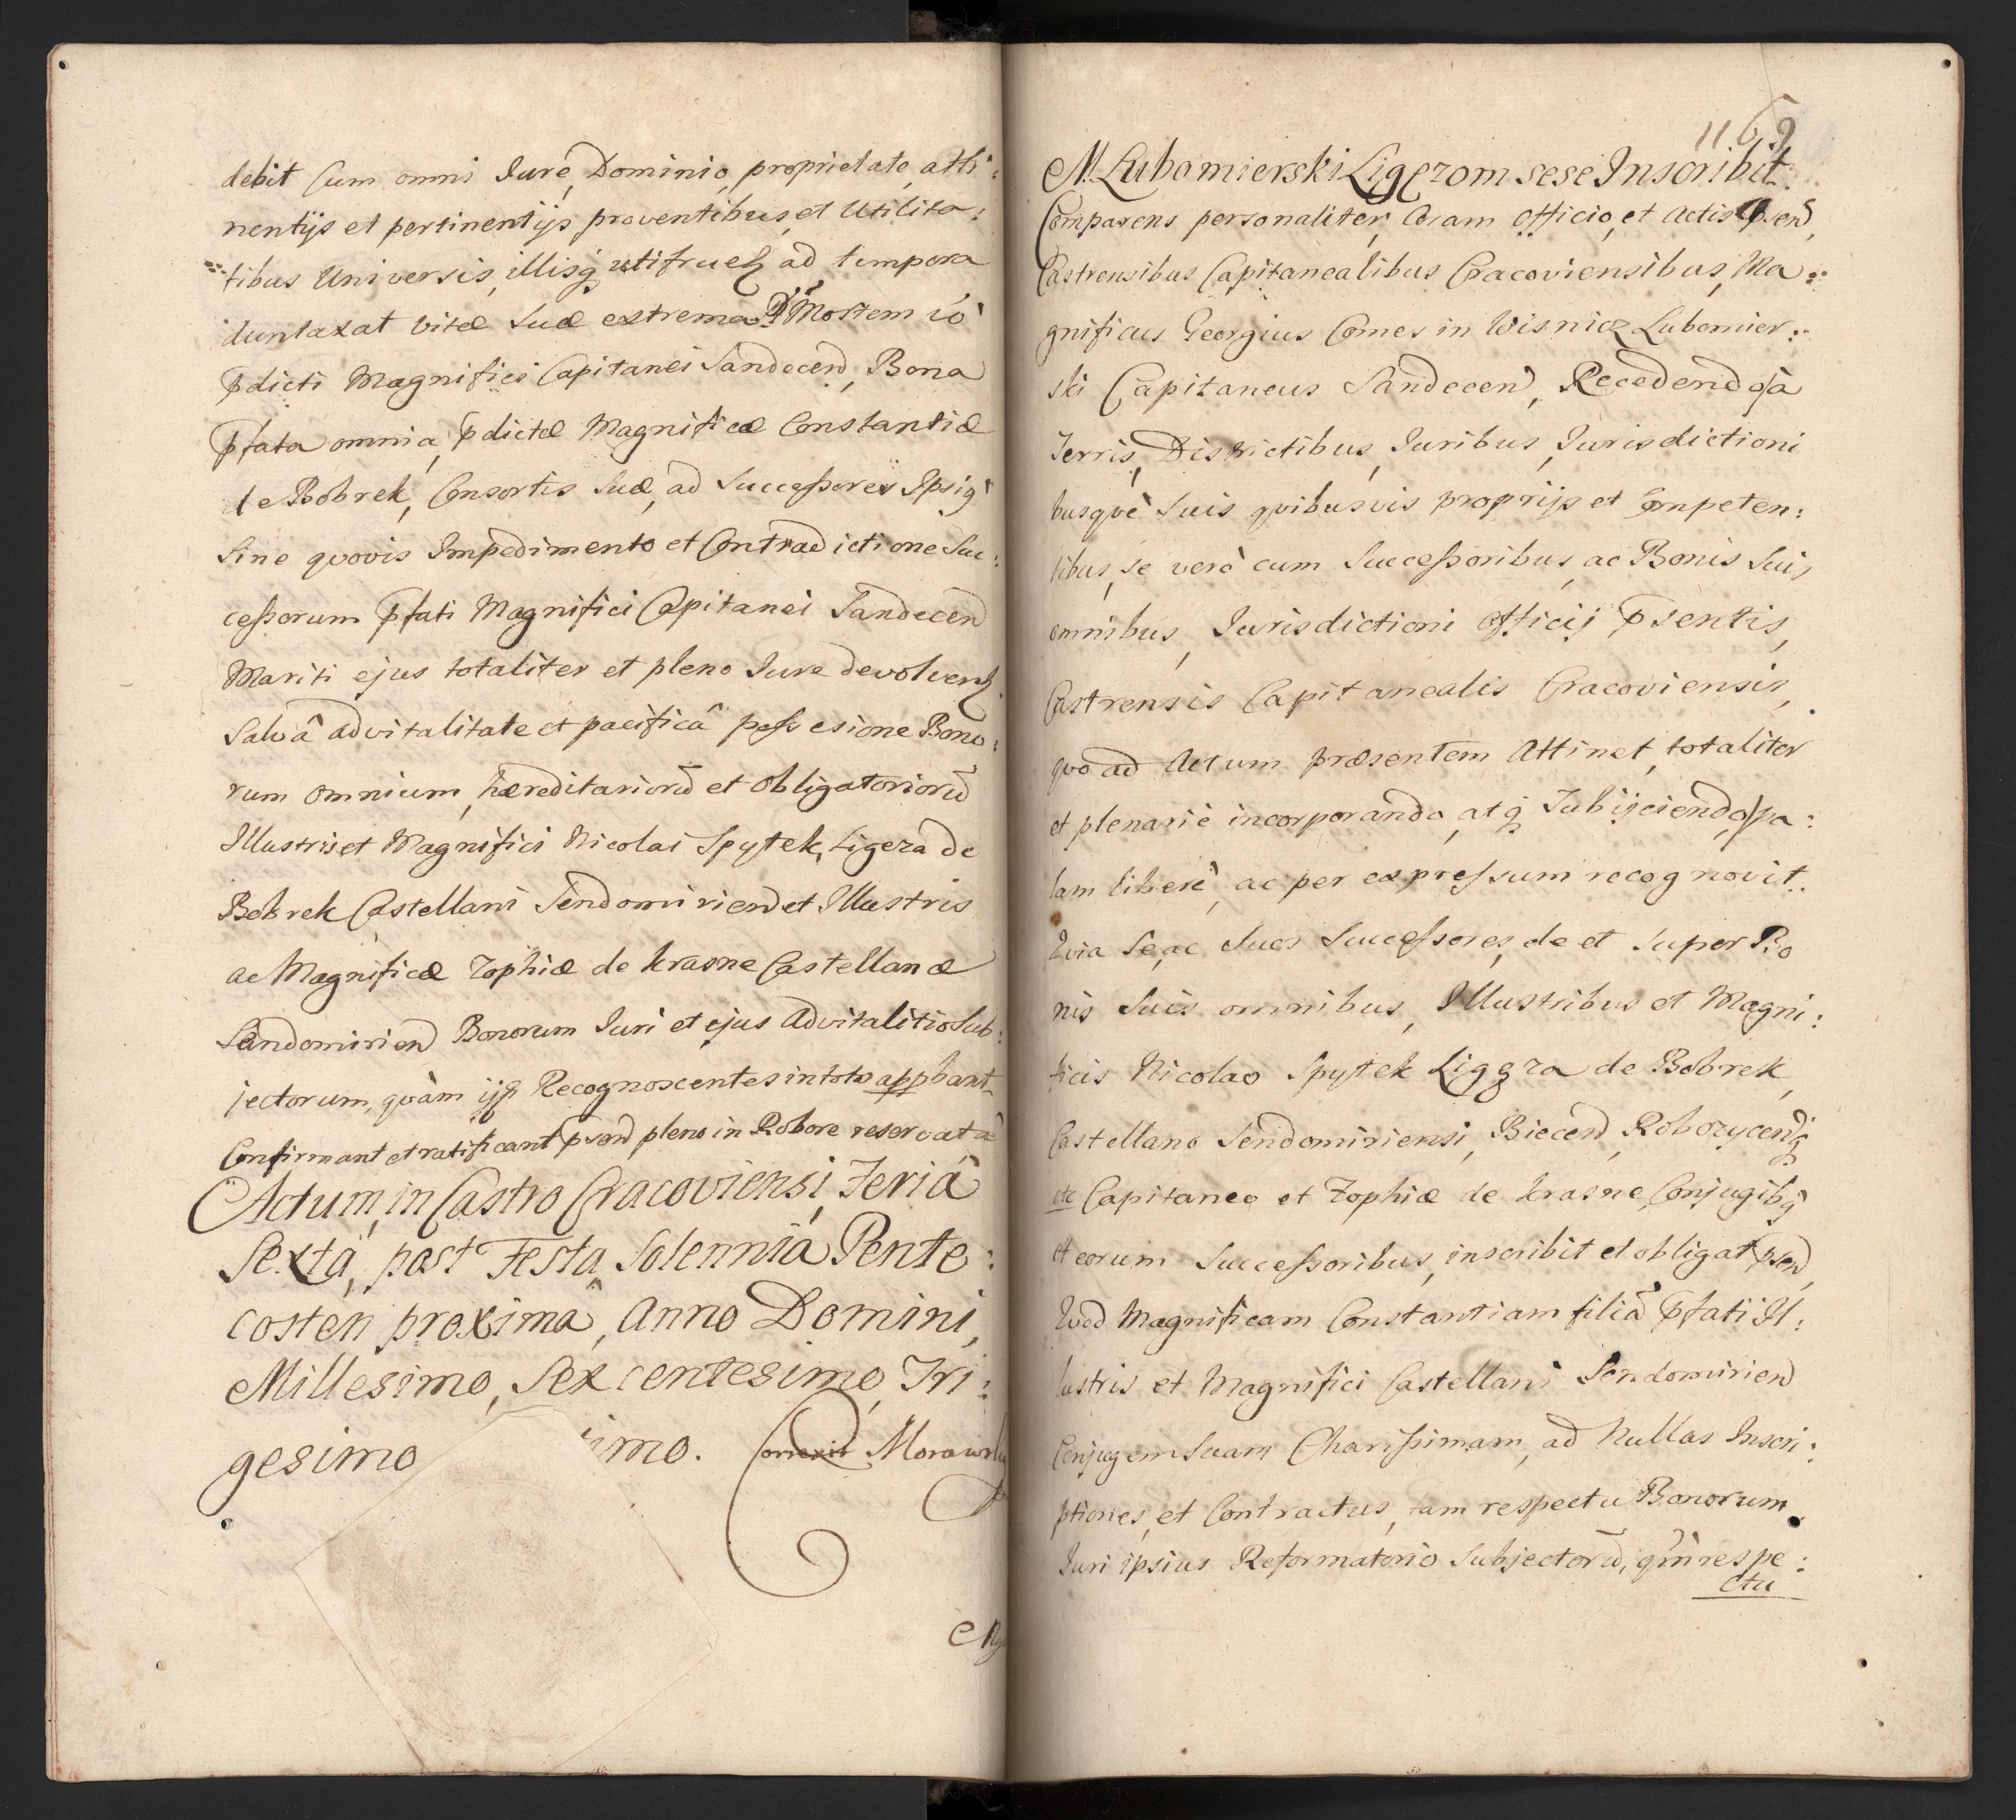 debit Cum omni Jure, Dominio, proprietate, atti:
nentijs et pertinentijs proventibus, et Utilita:
tibus Universis, illisq utifrueñ ad tempora
duntaxat vitæ Suæ extrema Mortem vò
pdicti Magnifici Capitanei Sandecen, Bona
pfata omnia, pdictæ Magnificæ Constantiæ
de Bobrek, Consortis Suæ, ad Successores Ipsiq
Sine qvovis Impedimento et Contradictione Suc:
cessorum pfati Magnifici Capitanei Sandecen
Mariti ejus totaliter et pleno Jure devolven
Salvâ advitalitate et pacificâ possesione Bono:
rum omnium, hæreditariorū et obligatoriorū
Illustris et Magnifici Nicolai Spytek, Ligeza de
Bobrek Castellani Sendomirien et Illustris
ac Magnificæ Zophiæ de krasne Castellanæ
Sandomirien Bonorum Juri et ejus advitalitio Sub:
jectorum, qvàm ijp Recognoscentes in toto appbant
Confirmant et ratificant psen pleno in Robore reservatâ
Actum, in Castro Cracoviensi, Feriâ
Sextâ, post Festa Solennia Pente:
costen proximâ, Anno Domini,
Millesimo, Sexcentesimo, Tri:
gesimo imo. Correxit Morawsky
Mg
1169
M. Lubomierski Ligęzom sese Inscribit.
Comparens personaliter, Coram officio, et Actis psen,
Castrensibus Capitanealibus Cracoviensibus, Ma:
gnificus Georgius Comes in Wisnicz Lubomier:
ski Capitaneus Sandecen, Recedendo à
Terris, Districtibus, Juribus, Jurisdictioni
busqvè Suis qvibusvis proprijs et Competen:
tibus, se verò cum Successoribus, ac Bonis Suis,
omnibus, Jurisdictioni officij psentis,
Castrensis Capitanealis Cracoviensis,
qvo ad Actum præsentem Attinet, totaliter
et plenariè incorporando, atq Subijciendo, pa:
lam liberè, ac per expressum recognovit.
Qvia Se, ac Suos Successores, de et Super Bo
nis Suis omnibus, Illustribus et Magni:
ficis Nicolao Spytek Ligęza de Bobrek,
Castellano Sendomiriensi, Biecen, Roborzycenq
etc Capitaneo et Zophiæ de krasne, Conjugibq
et eorum Successoribus, inscribit et obligat psen,
Qvod Magnificam Constantiam filiā pfati Il:
lustris et Magnifici Castellani Sendomirien
Conjugem Suam Charissimam, ad Nullas Inscri:
ptiones, et Contractus, tam respectu Bonorum,
Juri ipsius Reformatorio Subjectorū, qm respe:
ctu